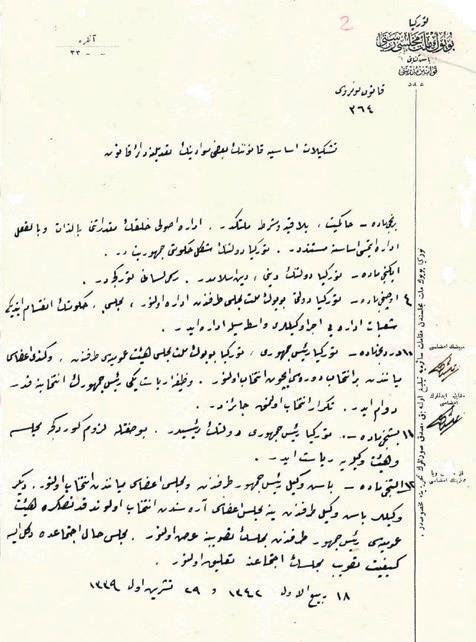 2
تورکیا
بیوک ملت مجلسی ریاستی
قوانین مدیریتی
عدد
آنقره
٣٣ - -
قانون نومروسی
٣٦٤
تشکیلات اساسیه قانوننك بعض موادینك تعدیلنه دائر قانون
برنجی ماده - حاکمیت، بلا قید و شرط ملتکدر. اداره اصولی خلقك مقدراتنی بالذات و بالفعل
اداره ایتمسی اساسنه مستنددر. تورکیا دولتنك شکل حکومتی جمهوریتدر.
ایکنجی ماده - تورکیا دولتنك دینی، دین اسلامدر. رسمی لسانی تورکجه در.
٤ ماده - تورکیا دولتی بیوك ملت مجلسی طرفندن اداره اولنور. مجلس، حکومتك انقسام ایتدیکی
شعبات اداره یی اجرا وکیللری واسطه سیله اداره ایدر.
١٠ ماده - تورکیا رئیس جمهوری، تورکیا بیوك ملت مجلسی هیئت عمومیه سی طرفندن و کندی اعضاسی
میانندن بر انتخاب دوره سی ایچون انتخاب اولنور. وظیفۀ ریاست یکی رئیس جمهورك انتخابنه قدر
دوام ایدر. تکرار انتخاب اولنمق جائزدر.
١١ ماده - تورکیا رئیس جمهوری دولتك رئیسیدر. بو صفتله لزوم کوردکجه مجلسه
و هیئت وکیله یه ریاست ایدر.
١٢ ماده - باش وکیل رئیس جمهور طرفندن و مجلس اعضاسی میانندن انتخاب اولنور. دیکر
وکیللر باش وکیل طرفندن ینه مجلس اعضاسی آره سندن انتخاب اولندقدن صکره هیئت
عمومیه سی رئیس جمهور طرفندن مجلسك تصویبنه عرض اولنور. مجلس حال اجتماعده دکل ایسه
کیفیت تصویب مجلسك اجتماعنه تعلیق اولنور.
١٨ ربیع الاول ١٣٤٢ و ٢٩ تشرین اول ١٣٣٩